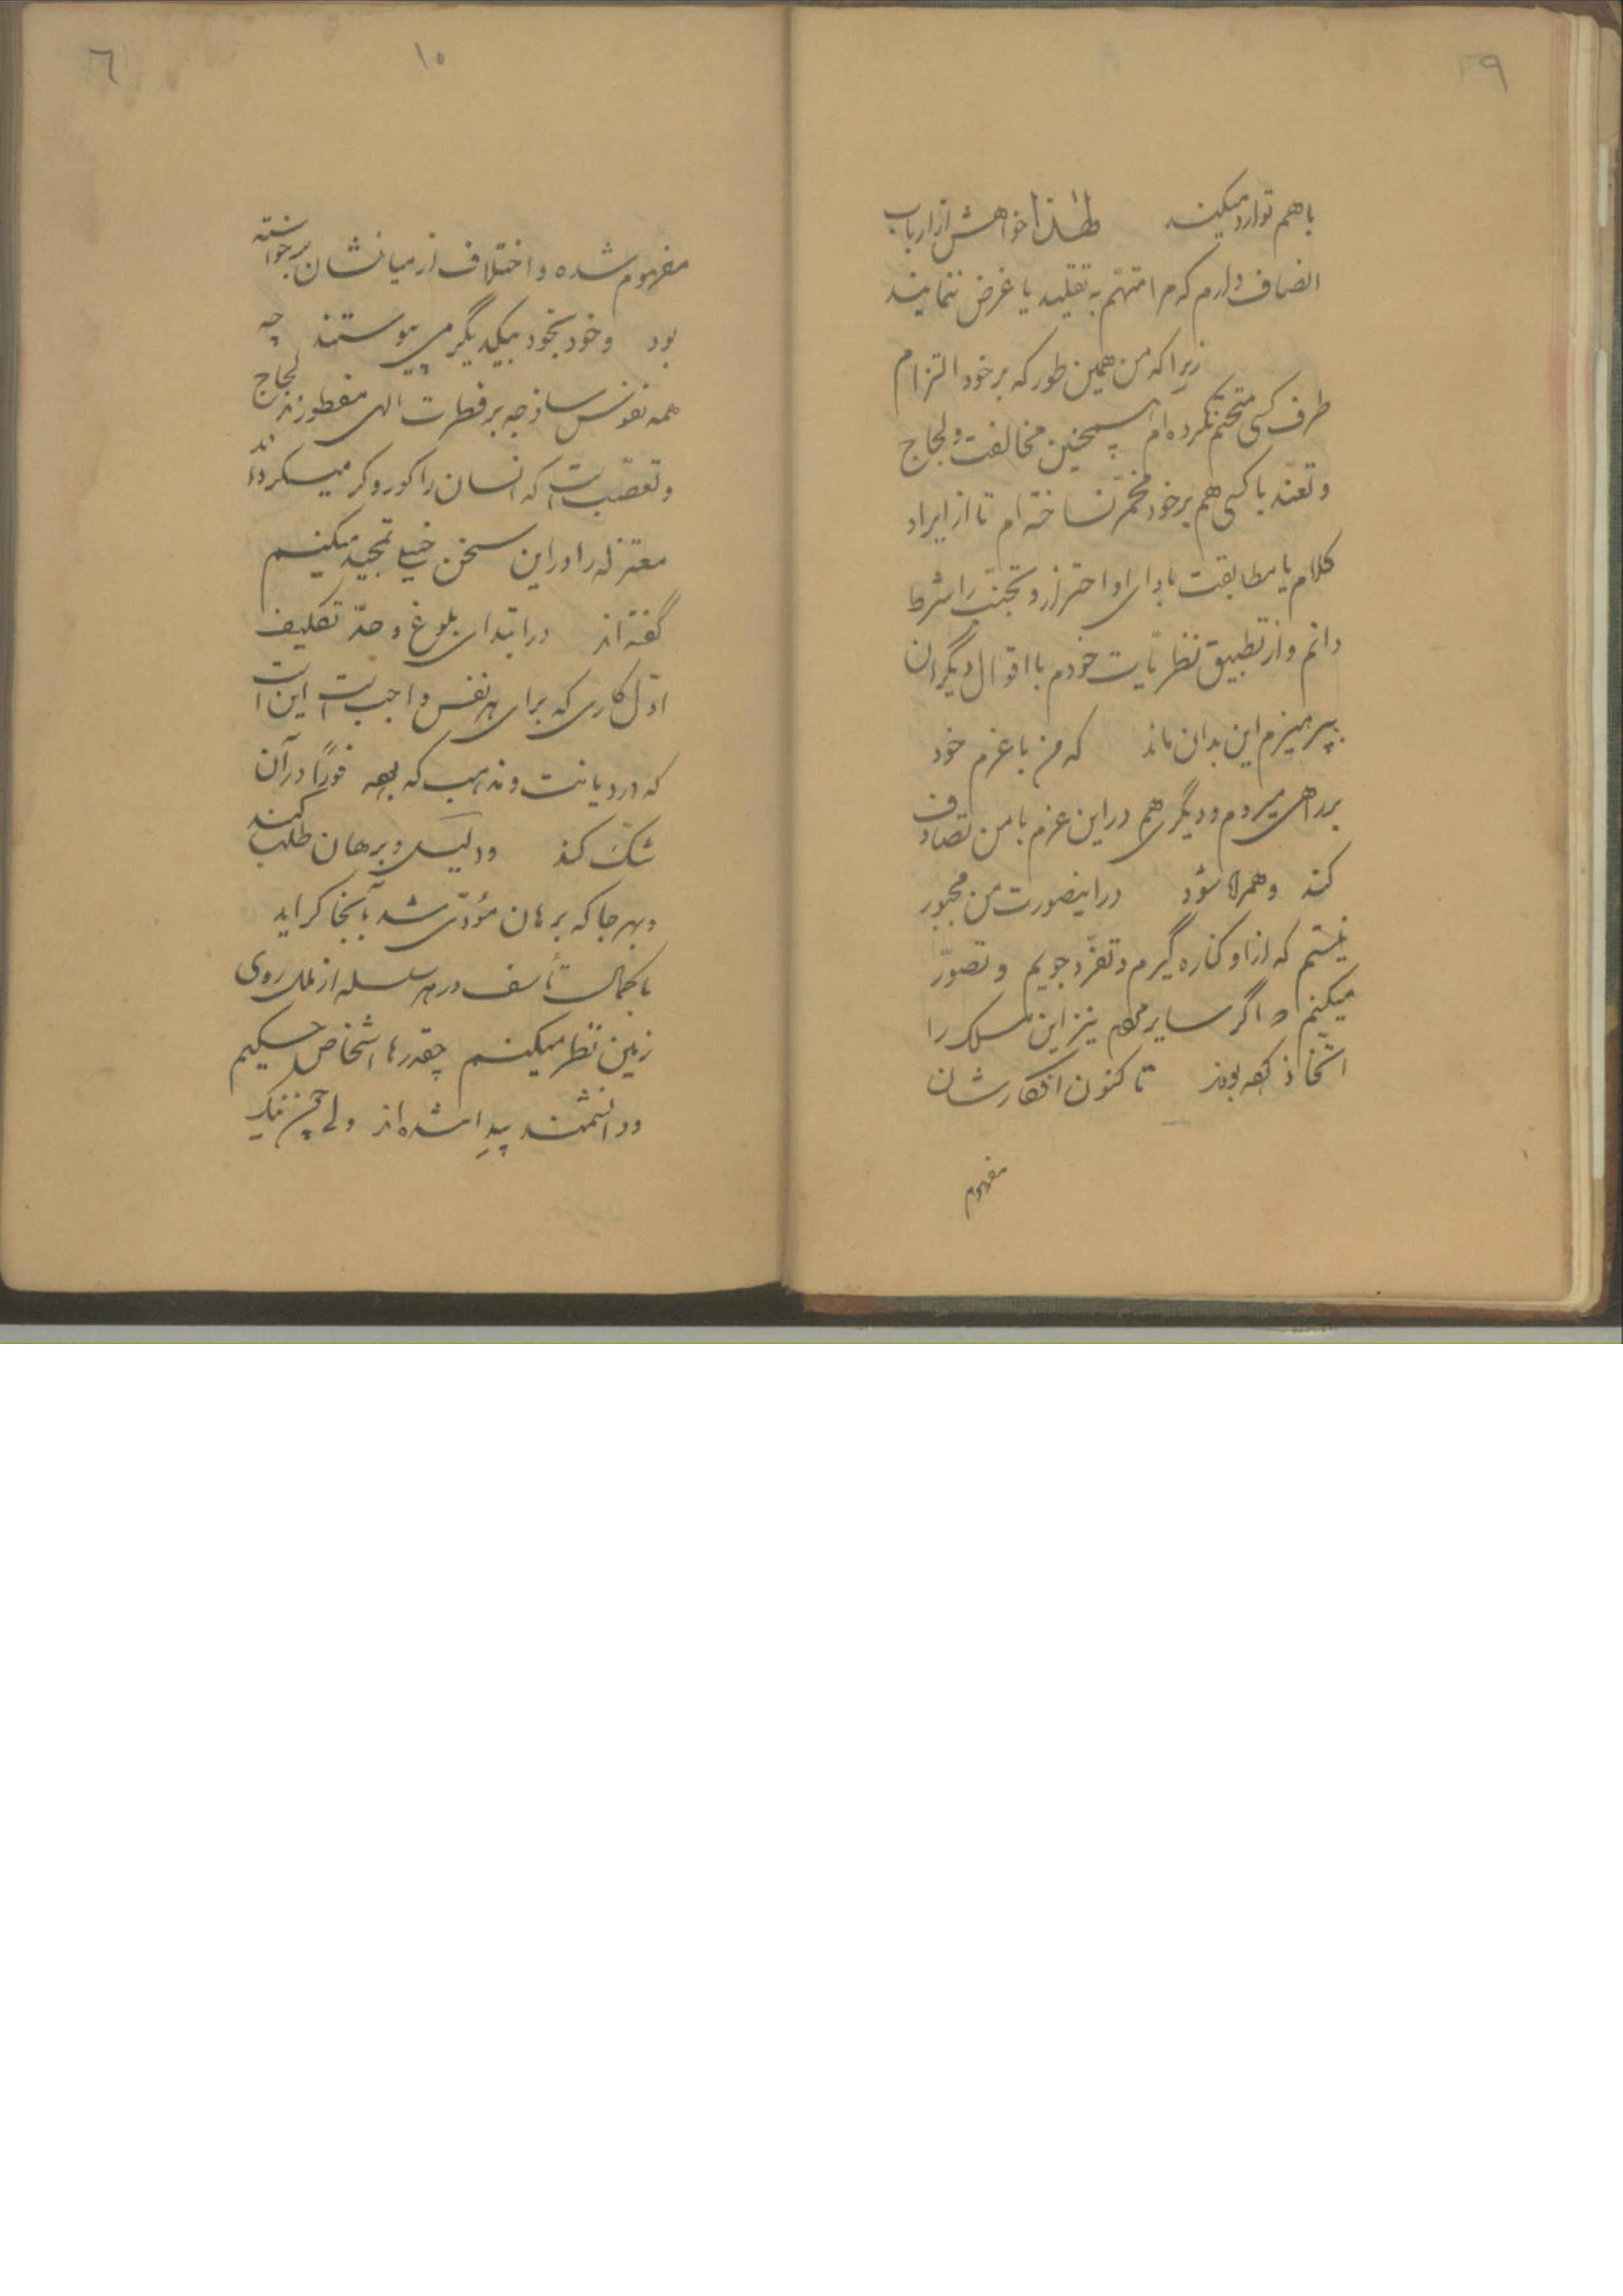 ۹
باهم توارد میکنند لهذا خواهش از ارباب
انصاف دارم که مرا متهّم به تقلید یا غرض ننمایند
زیرا که من همین طور که بر خود التزام
طرف کسی متحتّم نکرده ام همچنین مخالفت و لجاج
و تعنّد با کسی هم بر خود مخمّر نساخته ام تا از ایراد
کلام یا مطابقت با رای او احتراز و تجنّب را شرط
دانم و از تطبیق نظریّات خودم با اقوال دیگران
بپرهیزم این بدان ماند که من با عزم خود
براهی میروم و دیگری هم در این عزم با من تصادف
کند و همراه شود در اینصورت من مجبور
نیستم که از او کناره گیرم و تفرّد جویم و تصوّر
میکنم و اگر سایر مردم نیز این مسلک را
اتّخاذ کرده بودند تا کنون افکارشان
مفهوم
۱۰
۶
مفهوم شده و اختلاف از میانشان برخواسته
بود و خود بخود بیکدیگر می پیوستند چه
همه نفوس ساذجه بر فطرت الهی مفطورند لجاج
و تعصّب است که انسان را کور و کر میگرداند
معتزله را در این سخن خیلی تمجید میکنیم
گفته اند در ابتدای بلوغ و حدّ تکلیف
اوّل کاری که برای هر نفس واجب است این است
که در دیانت و مذهب که بوده فوراً در آن
شکّ کند و دلیل و برهان طلب کند
و بهر جا که برهان مؤدّی شد بآنجا گراید
با کمال تأسف در هر سلسله از ملل روی
زمین نظر میکنیم چقدرها اشخاص حکیم
و دانشمند پیدا شده اند ولی چون نیک